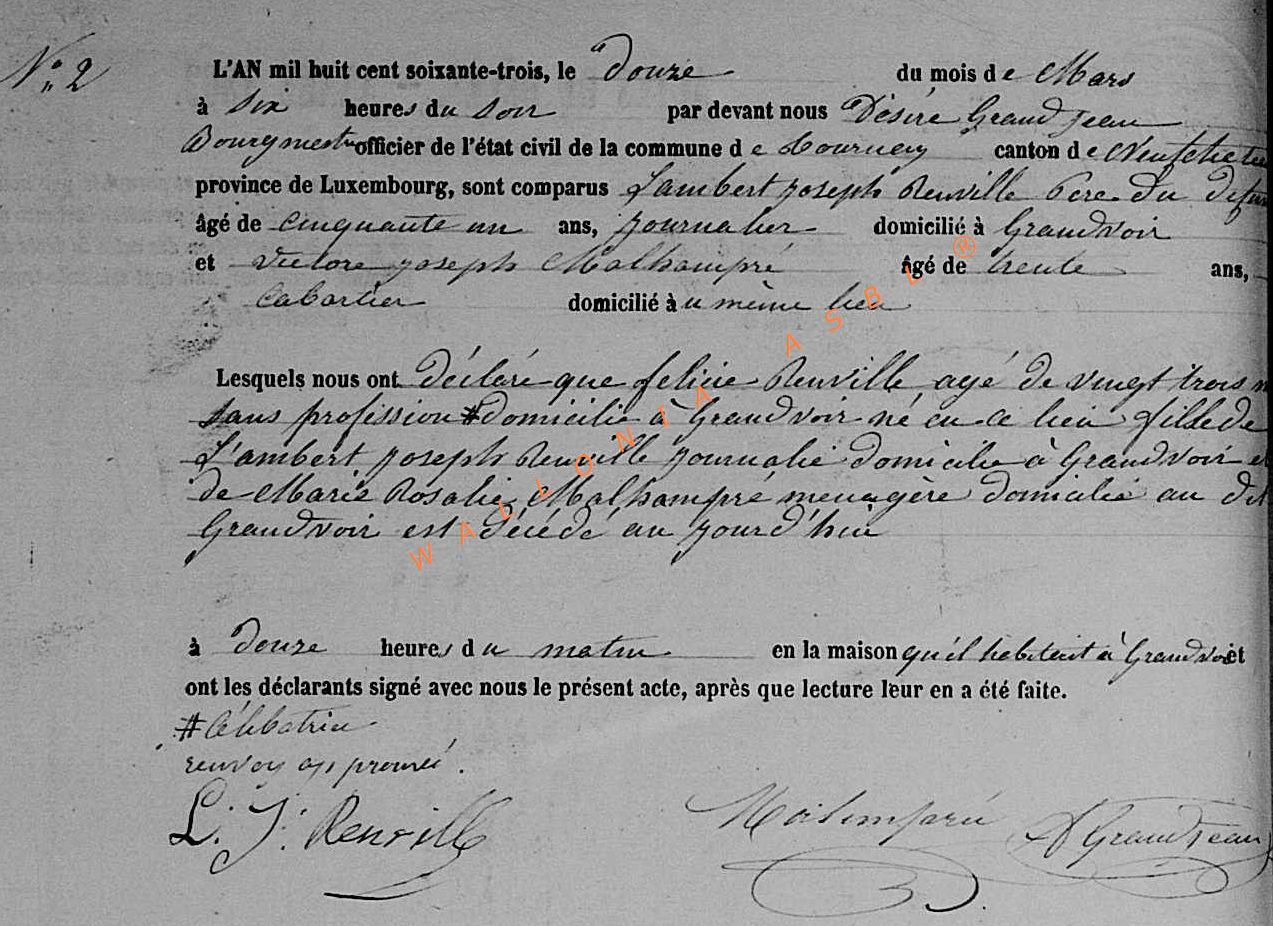 N° 2
L'AN mil huit cent soixante-trois, le douze du mois de Mars
à six heures du soir par devant nous Désiré Grandjean
Bourgmestre officier de l'état civil de la commune de Tournay canton de Neufchateau
province de Luxembourg, sont comparus Lambert Joseph Renville Père du defun
âgé de cinquante un ans, journalier domicilié à Grandvoir
et Victore joseph Malhampré âgé de trente ans,
cabartier domicilié àu même lieu
Lesquels nous ont déclaré que felicie Renville agé de vingt trois
sans profission # domicilié à Grandvoir né en ce lieu fille de
Lambert Joseph Renville journalié domicilié à Grandvoir et
de Marie Rosalie Malhampré menagère domicilié au dit
Grandvoir est décédé au jourd'hui
à douze heures du matin en la maison qu'il habitait à Grandvoir et
ont les déclarants signé avec nous le présent acte, après que lecture leur en a été faite.
# Célibatrice
renvoy approuvé.
L. J. Renville Malempré D Grandjean
WALLONIA ASBL ®